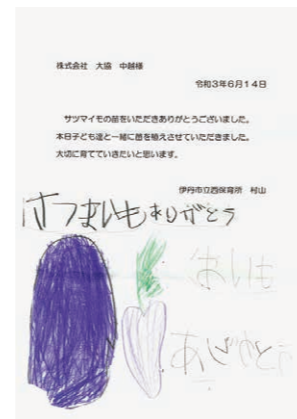 株式会社　大協　中越様
令和3年6月14日
サツマイモの苗をいただきありがとうございました。
本日子ども達と一緒に苗を植えさせていただきました。
大切に育てていきたいと思います。
伊丹市立西保育所　村山
さつまいもありがとう
おいも
ありがとう